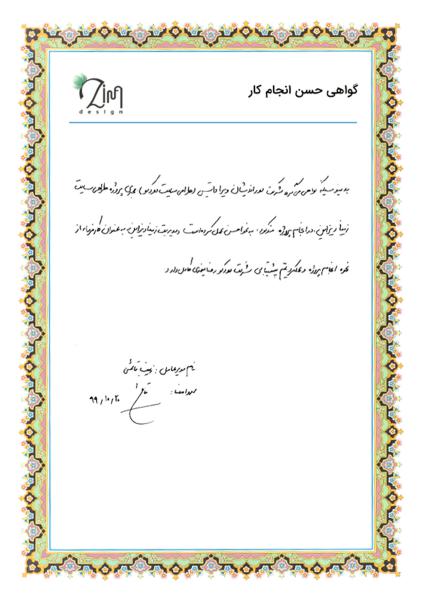 گواهی حسن انجام کار
Zima
design
بدینوسیله گواهی می‌گردد شرکت نوراندیشان ویرا داتیس (طراحی سایت مدرکو) مجری پروژه طراحی سایت
زیما دیزاین، در انجام پروژه مذکور، به نحو احسن عمل کرده است و مدیریت زیما دیزاین به عنوان کارفرما، از
نحوه انجام پروژه و عملکرد تیم پشتیبانی شرکت مذکور رضایتمندی کامل دارد
نام مدیرعامل:
مهر و امضا:
۹۹/۱۰/۲۰